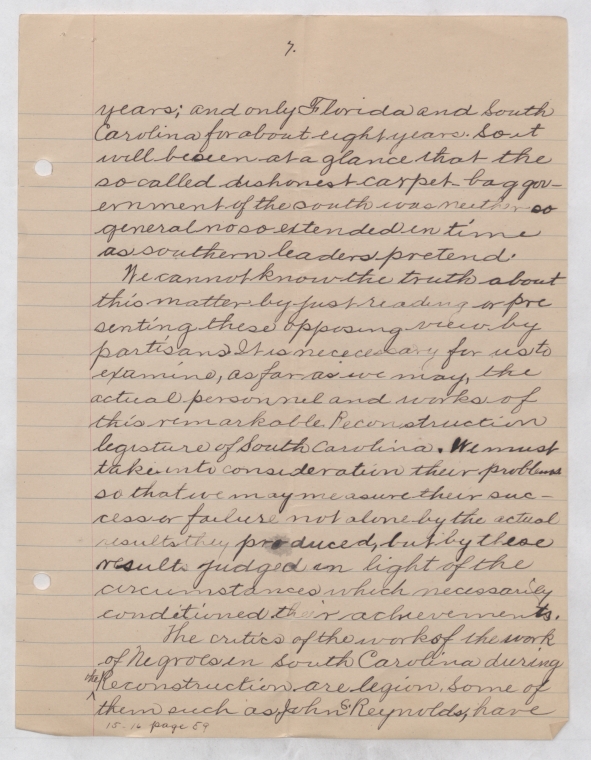 7.
years; and only Florida and South
Carolina for about eight years. So it
will be seen at a glance that the
so called dishonest carpet-bag gov-
ernment of the south was neither so
general no so extended in time
as southern leaders pretend.
We cannot know the truth about
this matter by just reading or pre
senting these opposing view by
partisans. It is nececessary for us to
examine, as far as we may, the
actual personnel and works of
this remarkable Reconstruction
legisture of South Carolina. We must
take into consideration their problems
so that we may measure their suc-
cess or failure not alone by the actual
results they produced, but by these
results judged in light of the
circumstances which necessarily
conditioned their achievements.
The critics of the works of the work
of Negroes in South Carolina during
the Reconstruction are legion. Some of
them such as John S. Reynolds, have
15-16 page 59